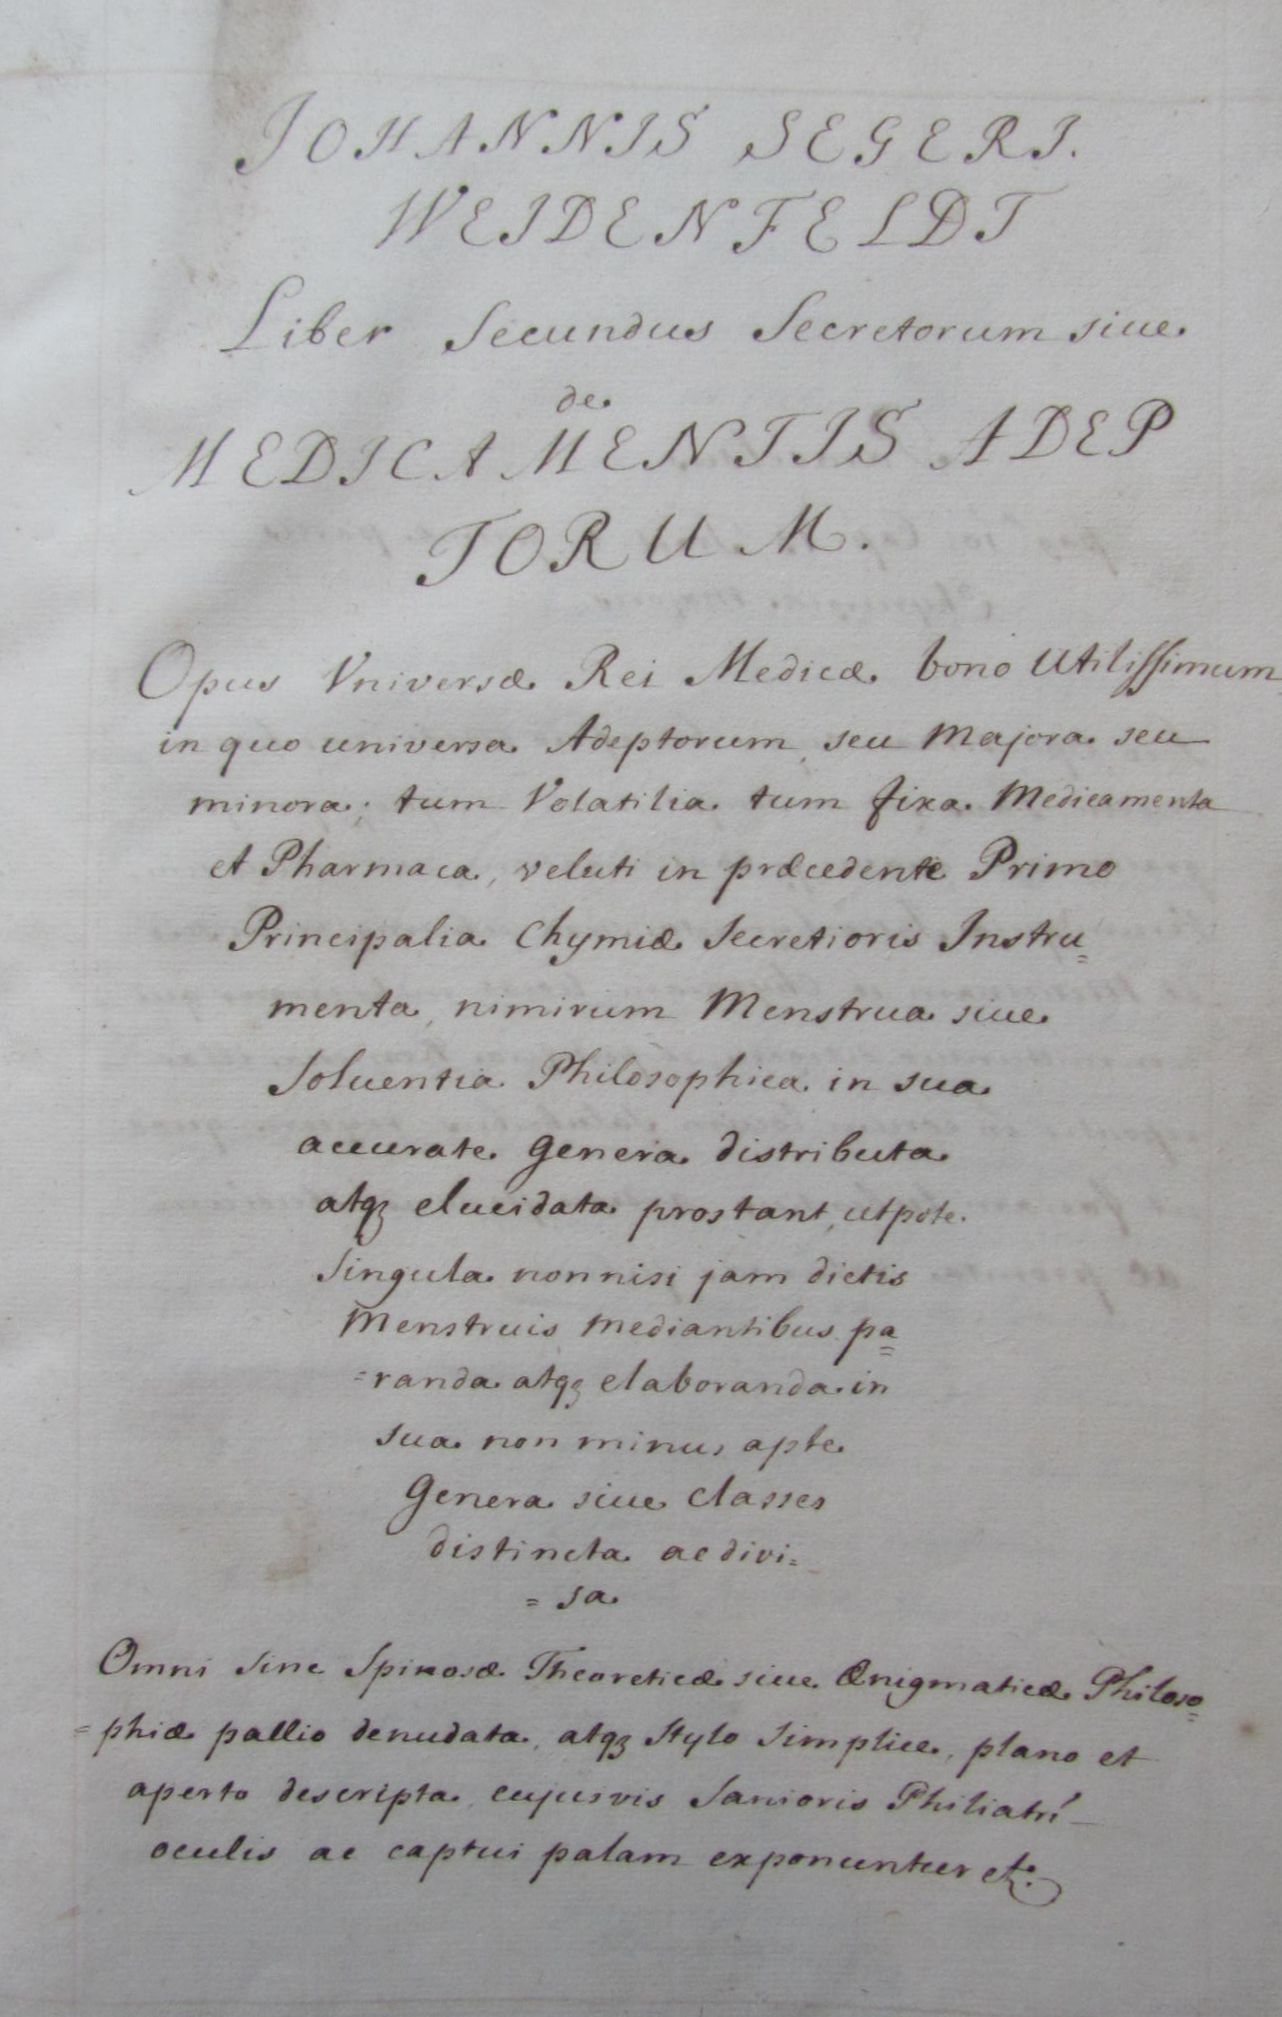 JOHANNIS SEGERI.
WEIDENFELDT
Liber Secundus Secretorum siue
de
MEDICAMENTIS ADEP
TORUM.
Opus Vniversæ Rei Medicæ bono utilissimum
in quo universa Adeptorum, seu Majora seu
minora; tum Volatilia tum fixa Medicamenta
et Pharmaca, veluti in præcedente Primo
Principalia Chymiæ Secretioris Instru=
menta, nimirum Menstrua siue
Soluentia Philosophica in sua
accurate genera distributa
atqz elucidata prostant, utpote
singula nonnisi jam dictis
Menstruis mediantibus pa=
=randa atqz elaboranda in
sua non minus apte
genera siue classes
distincta ac divi=
=sa
Omni sine Spinosæ Theoreticæ siue Ænigmaticæ Philoso=
=phiæ pallio denudata, atqz Stylo simplice, plano et
aperto descripta, cujusvis Sanioris Philiatri
oculis ac captui palam exponuntur etc.